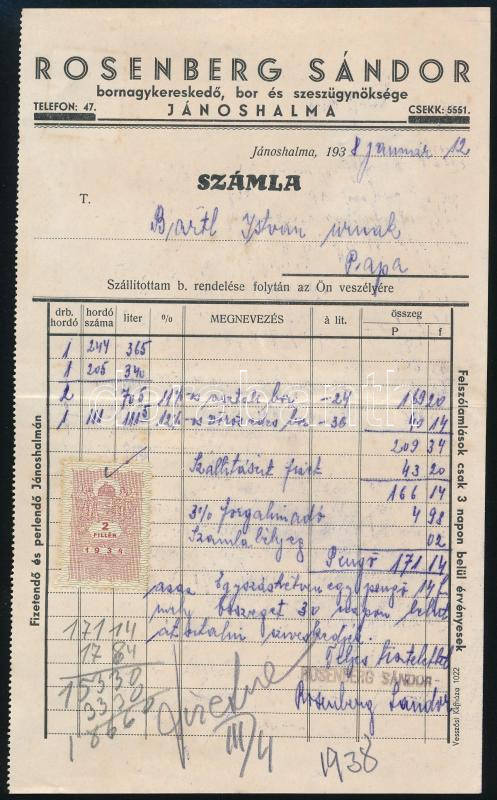 ROSENBERG SÁNDOR
bornagykereskedő, bor és szeszügynöksége
TELEFON: 47. JÁNOSHALMA CSEKK: 5551.
Jánoshalma, 1938 január 12
SZÁMLA
T. Bártl István urnak
Pápa
Szállítottam b. rendelése folytán az Ön veszélyére
drb. hordó hordó száma liter % MEGNEVEZÉS à lit. összeg P f
1 244 365
1 205 340
2 705 11% os asztali bor -24 169 20
1 111 111.5 12% os bor -36 40 14
209 34
Szállításért fizet 43 20
166 14
3% forgalmiadó 4 98
Számla bélyeg 02
Pengő 171 14
azaz Egyszázhetvenegy pengő 14 f
mely összeget 30 napon belül
átutalni sziveskedjék.
Teljes tisztelettel
ROSENBERG SÁNDOR
Rosenberg Sándor
2
FILLÉR
1934
171 14
17 84
153 30
33 30
1 8660
III/4
1938
Fizetendő és perlendő Jánoshalmán
Felszólamlások csak 3 napon belül érvényesek
Vesszősi Kiskőrös 1022
darabanth